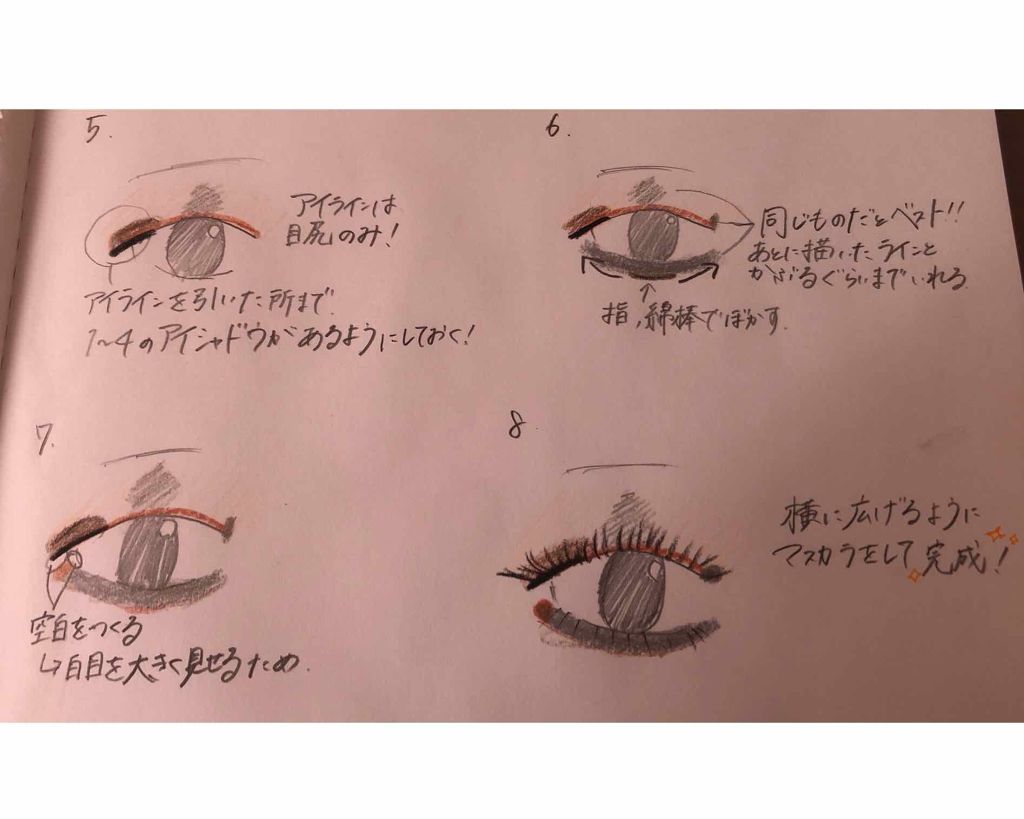 5.
アイラインは
目尻のみ!
アイラインを引いた所まで
1~4のアイシャドウがあるようにしておく!
6.
同じものだとベスト!!
あとに描いたラインと
かぶるぐらいまでいれる
指,綿棒でぼかす.
7.
空白をつくる
↳白目を大きく見せるため.
8
横に広げるように
マスカラをして完成!